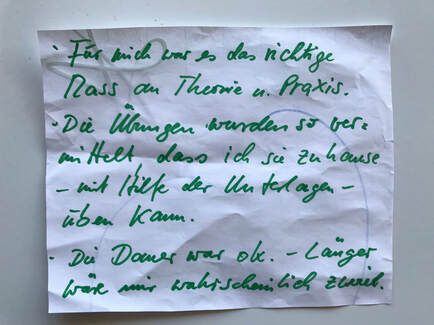 · Für mich war es das richtige
Mass an Theorie u. Praxis.
· Die Übungen wurden so ver=
mittelt, dass ich sie zuhause
– mit Hilfe der Unterlagen –
üben kann.
· Die Dauer war ok. – Länger
wäre mir wahrscheinlich zuviel.